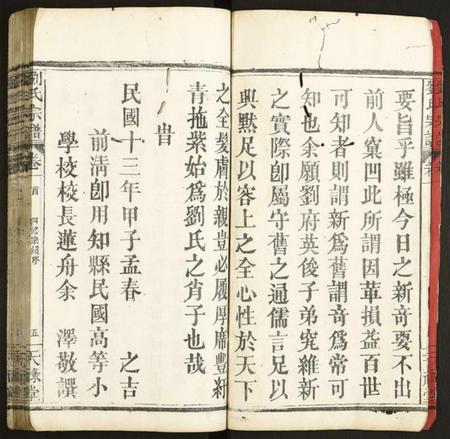 要旨乎雖極今日之新奇要不出
前人窠凹此所謂因革損益百世
可知者則謂新爲舊謂奇爲常可
知也余願劉府英俊子弟究維新
之實際卽屬守舊之通儒言足以
與黙足以容上之全心性於天下
之全髮膚於親豈必履厚席豐紆
青拖紫始爲劉氏之肖子也哉
旹
民國十三年甲子孟春 之吉
前清卽用知縣民國高等小
學校校長蓮舟余 澤敬譔
劉氏宗譜 卷 首 五 天祿堂